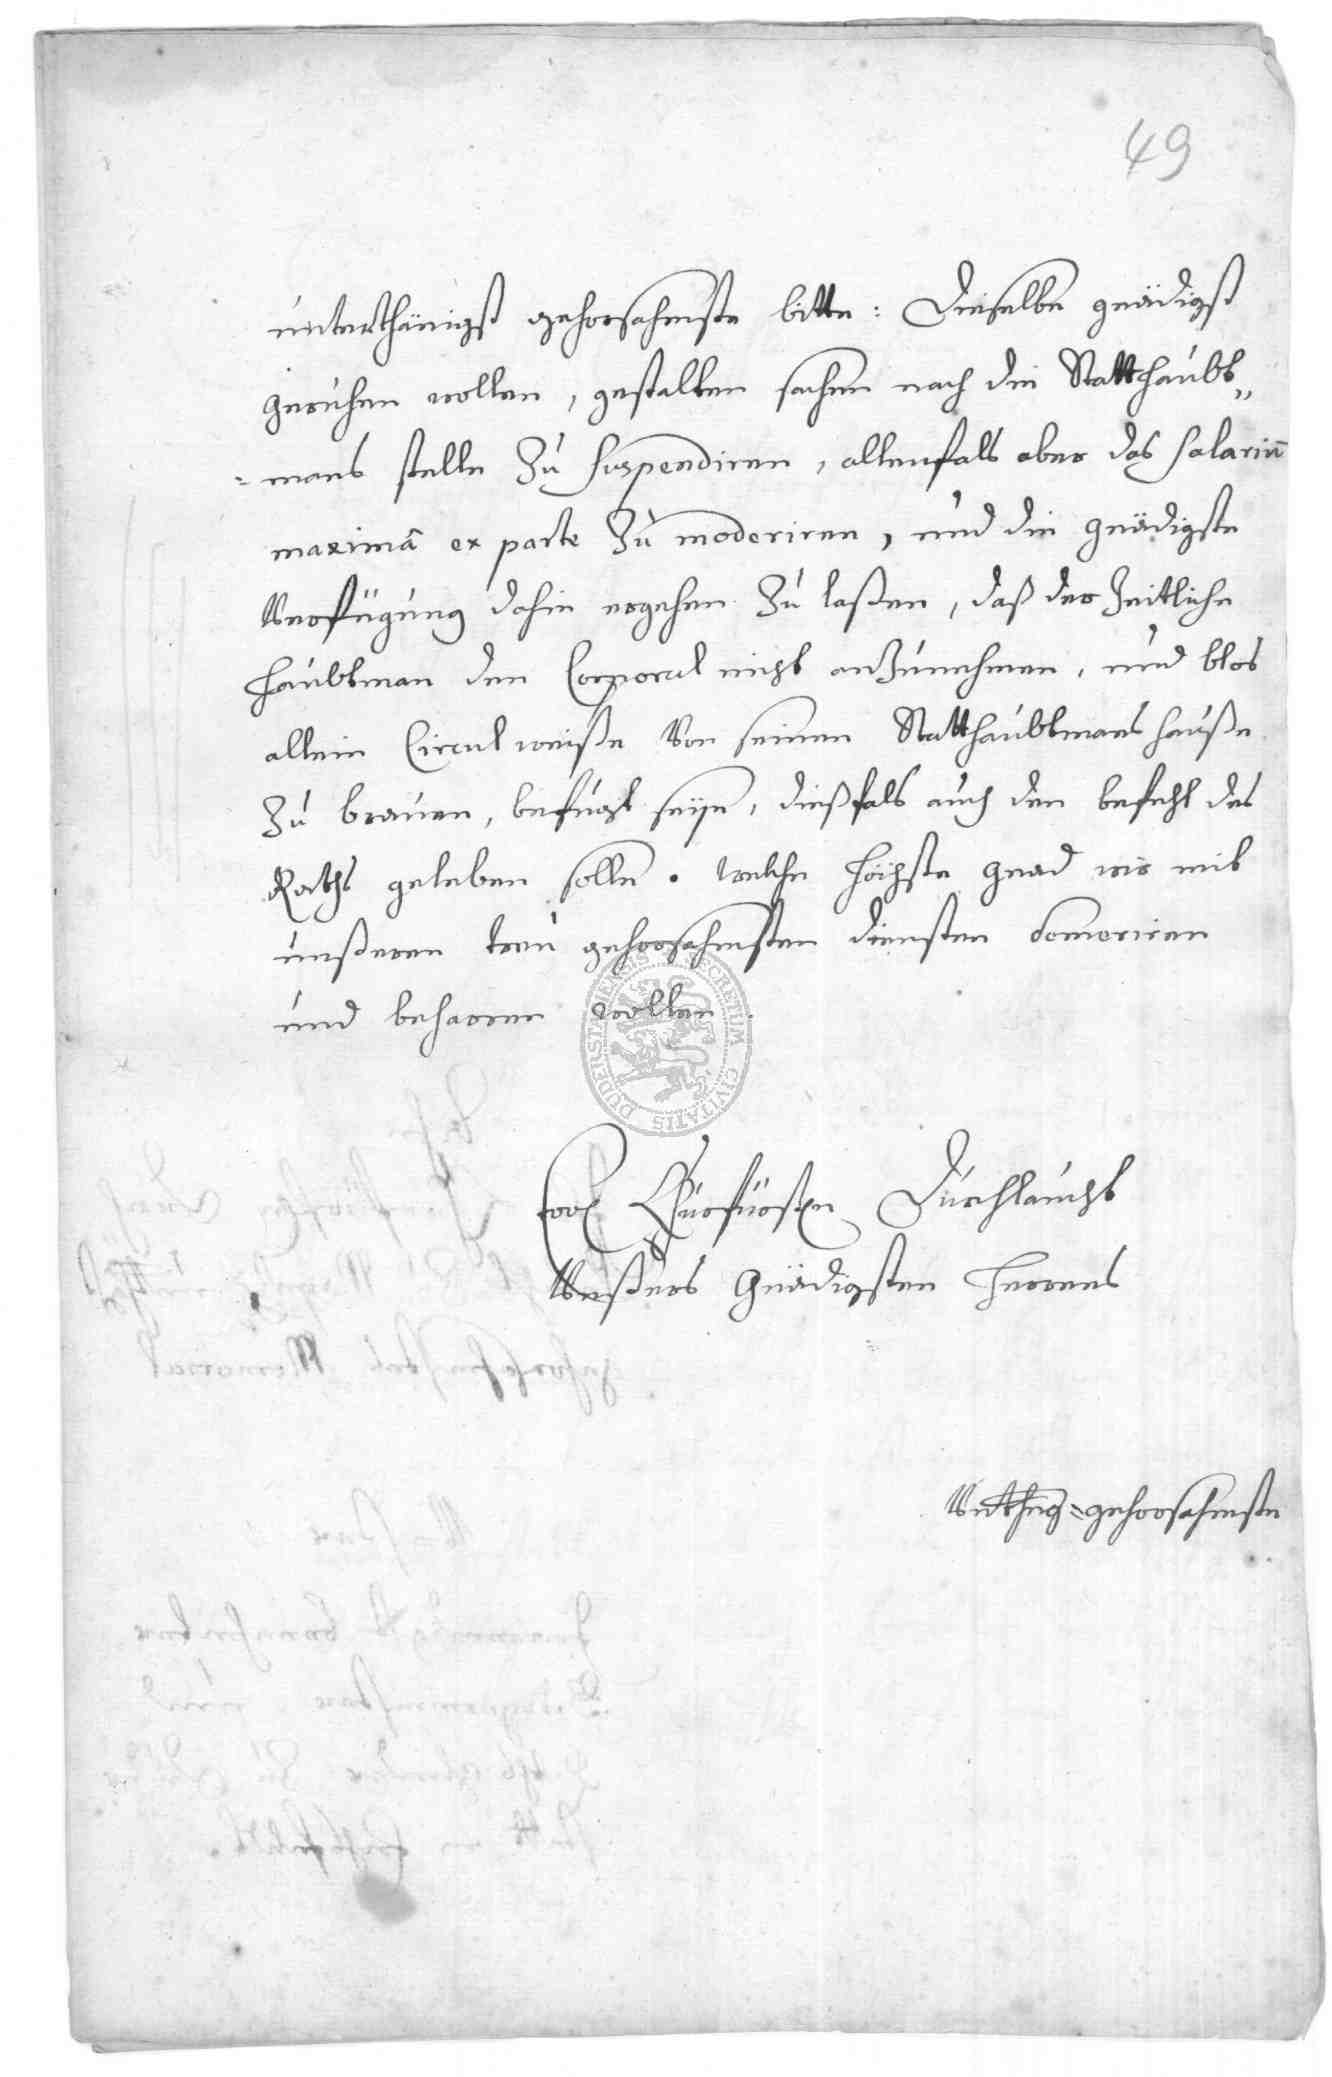 49
unterthänigst gehorsahmste bitte: Dieselbe gnädigst
geruhen wollen, gestalten sachen nach die Statthaubt„
=mans stelle zu suspendiren, allenfals aber das salariū
maximā ex parte zu moderiren, und die gnädigste
Verfügung dahin ergehen zu laßen, daß der zeitliche
haubtman den Corporal nicht anzunehmen, und blos
allein Circul weiße Von seinen Statthaubtmans hauße
zu brauen, befugt seÿe, dießfals auch den befehl des
Raths geleben solle. welche höchste gnad wir mit
unßeren treu gehorsahmsten diensten demeriren
und beharren wollen.
SECRETUM CIVITATIS DUDERSTADENSIS
Ewr Churfürstln Durchlaucht
Unßers Gnädigsten Herrens
Unthgs=gehorsahmste